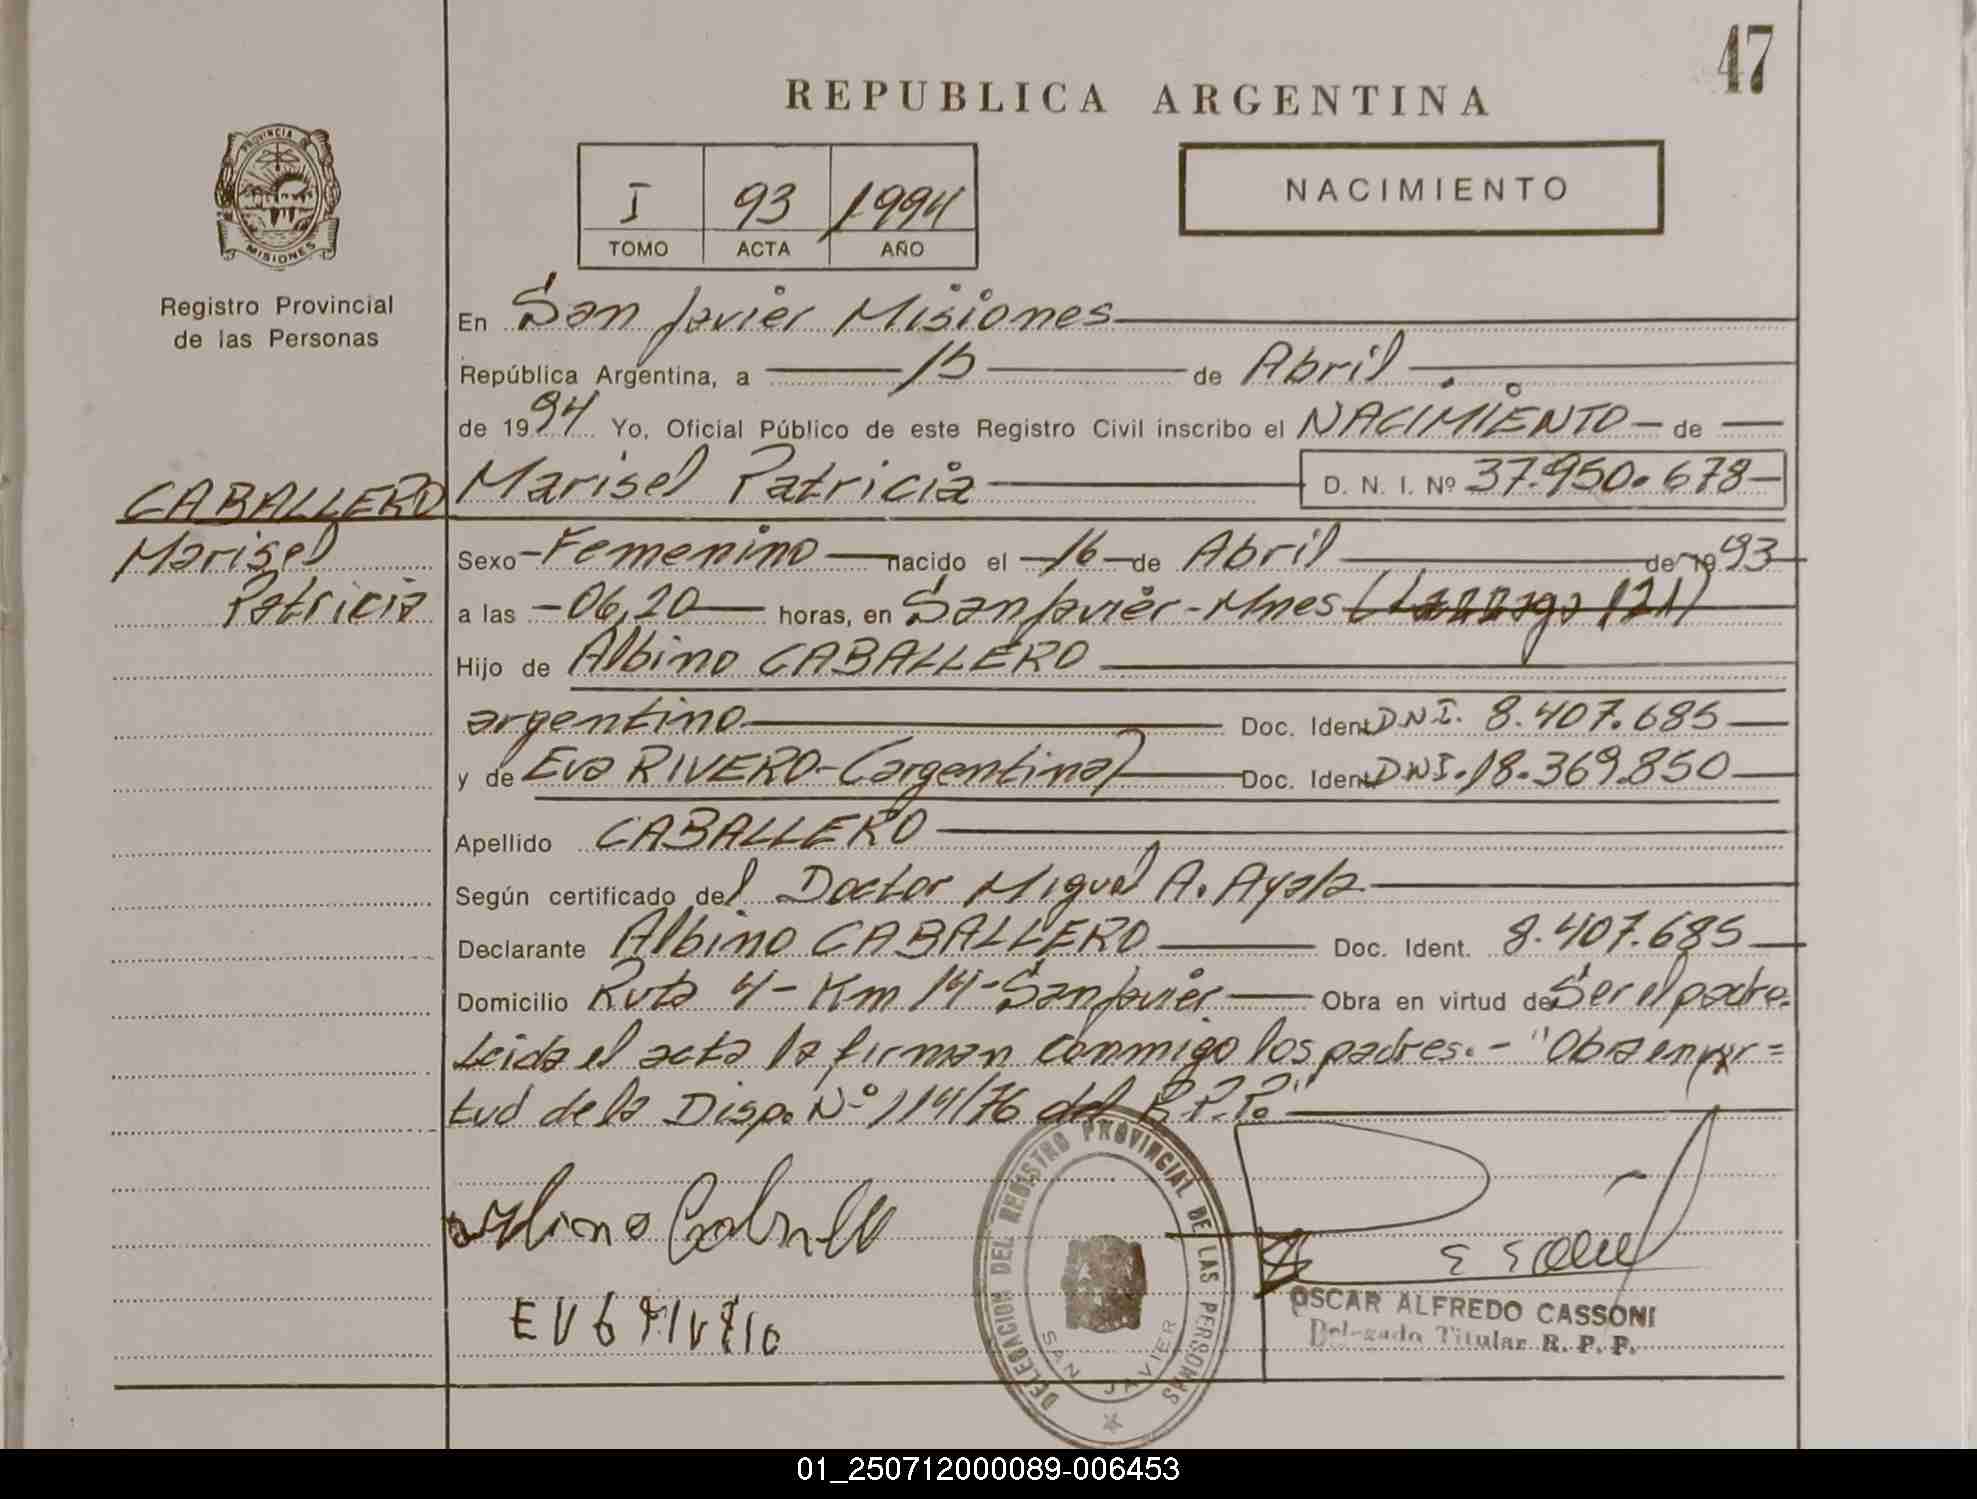 47
REPUBLICA ARGENTINA
PROVINCIA DE
MISIONES
Registro Provincial
de las Personas
I 93 1994
TOMO ACTA AÑO
NACIMIENTO
En San Javier Misiones
República Argentina, a 15 de Abril
de 1994 Yo, Oficial Público de este Registro Civil inscribo el NACIMIENTO de
CABALLERO Marisel Patricia D. N. I. Nº 37.950.678
Marisel
Patricia
Sexo Femenino nacido el 16 de Abril de 1993
a las 06,20 horas, en San Javier - Mnes
Hijo de Albino CABALLERO
argentino Doc. Ident DNI. 8.407.685
y de Eva RIVERO-(argentina) Doc. Ident DNI. 18.369.850
Apellido CABALLERO
Según certificado del Doctor Miguel A. Ayala
Declarante Albino CABALLERO Doc. Ident. 8.407.685
Domicilio Ruta 4 - Km 14 - San Javier Obra en virtud de Ser el padre.
Leida el acta la firman conmigo los padres. - "Obra en vir=
tud de la Disp. Nº 114/76 del R.P.P."
DELEGACION DEL REGISTRO PROVINCIAL DE LAS PERSONAS
SAN JAVIER
OSCAR ALFREDO CASSONI
Delegado Titular R. P. P.
01_250712000089-006453